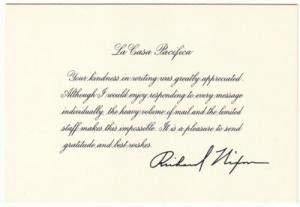 La Casa Pacifica
Your kindness in writing was greatly appreciated.
Although I would enjoy responding to every message
individually, the heavy volume of mail and the limited
staff makes this impossible. It is a pleasure to send
gratitude and best wishes.
Richard Nixon